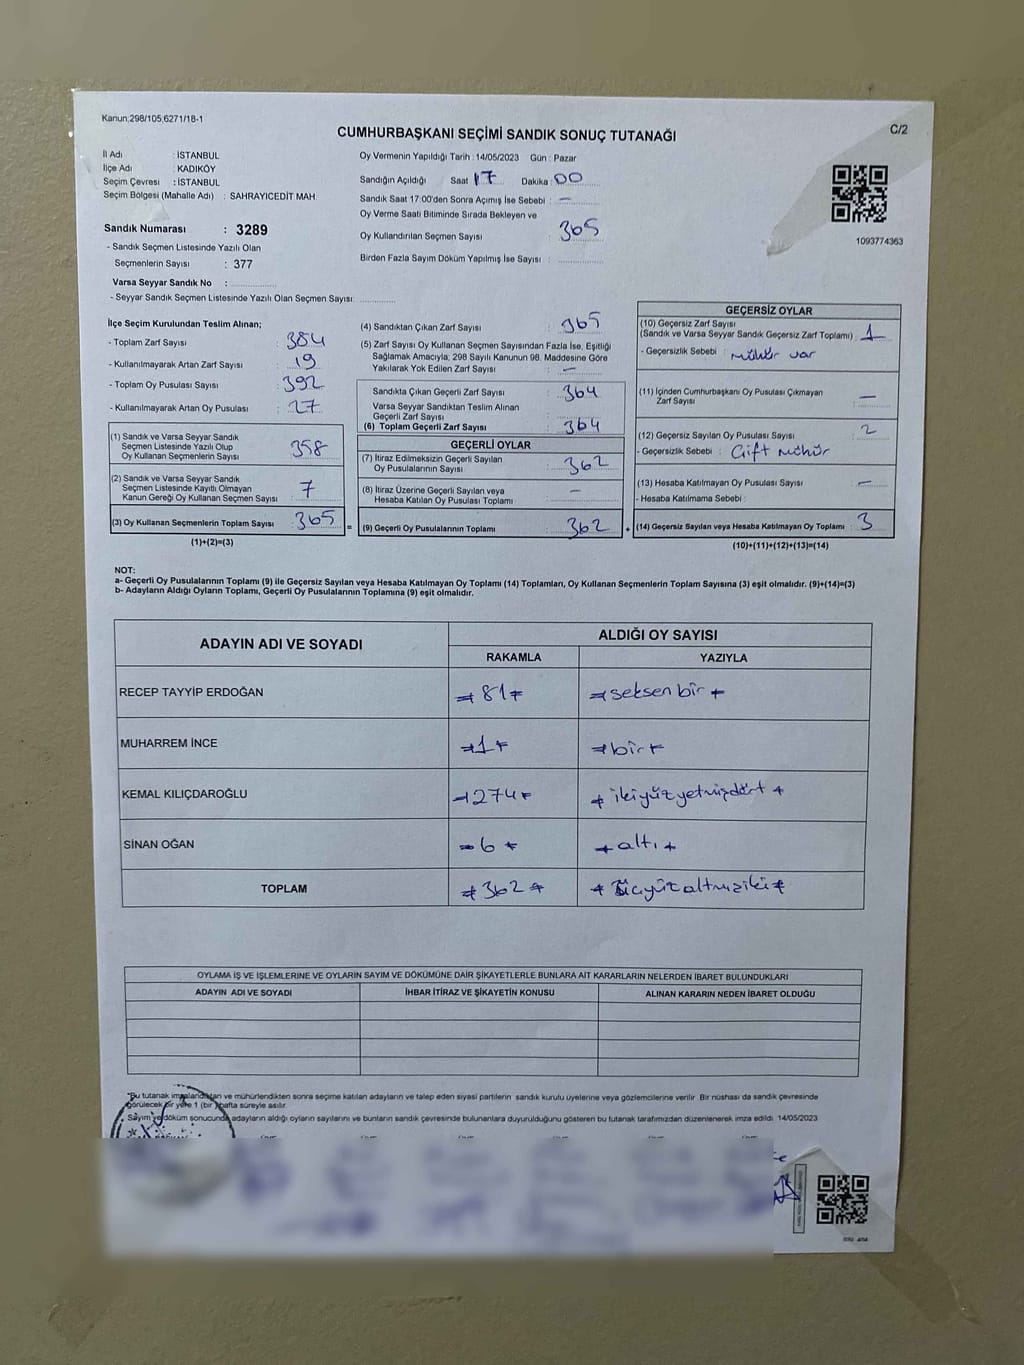 Kanun:298/105,6271/18-1
CUMHURBAŞKANI SEÇİMİ SANDIK SONUÇ TUTANAĞI
C/2
İl Adı : İSTANBUL
İlçe Adı : KADIKÖY
Seçim Çevresi : İSTANBUL
Seçim Bölgesi (Mahalle Adı) : SAHRAYICEDİT MAH
Sandık Numarası : 3289
- Sandık Seçmen Listesinde Yazılı Olan
Seçmenlerin Sayısı : 377
Varsa Seyyar Sandık No :
- Seyyar Sandık Seçmen Listesinde Yazılı Olan Seçmen Sayısı:
Oy Vermenin Yapıldığı Tarih : 14/05/2023 Gün : Pazar
Sandığın Açıldığı Saat 17 Dakika : 00
Sandık Saat 17:00'den Sonra Açımış İse Sebebi : –
Oy Verme Saati Bitiminde Sırada Bekleyen ve
Oy Kullandırılan Seçmen Sayısı : 365
Birden Fazla Sayım Döküm Yapılmış İse Sayısı :
1093774363
İlçe Seçim Kurulundan Teslim Alınan;
- Toplam Zarf Sayısı : 384
- Kullanılmayarak Artan Zarf Sayısı : 19
- Toplam Oy Pusulası Sayısı : 392
- Kullanılmayarak Artan Oy Pusulası : 27
(1) Sandık ve Varsa Seyyar Sandık
Seçmen Listesinde Yazılı Olup
Oy Kullanan Seçmenlerin Sayısı : 358
(2) Sandık ve Varsa Seyyar Sandık
Seçmen Listesinde Kayıtlı Olmayan
Kanun Gereği Oy Kullanan Seçmen Sayısı : 7
(3) Oy Kullanan Seçmenlerin Toplam Sayısı : 365 =
(1)+(2)=(3)
(4) Sandıktan Çıkan Zarf Sayısı : 365
(5) Zarf Sayısı Oy Kullanan Seçmen Sayısından Fazla İse, Eşitliği
Sağlamak Amacıyla; 298 Sayılı Kanunun 98. Maddesine Göre
Yakılarak Yok Edilen Zarf Sayısı : –
Sandıkta Çıkan Geçerli Zarf Sayısı : 364
Varsa Seyyar Sandıktan Teslim Alınan
Geçerli Zarf Sayısı :
(6) Toplam Geçerli Zarf Sayısı : 364
GEÇERLİ OYLAR
(7) İtiraz Edilmeksizin Geçerli Sayılan
Oy Pusulalarının Sayısı : 362
(8) İtiraz Üzerine Geçerli Sayılan veya
Hesaba Katılan Oy Pusulası Toplamı : –
(9) Geçerli Oy Pusulalarının Toplamı : 362 +
GEÇERSİZ OYLAR
(10) Geçersiz Zarf Sayısı
(Sandık ve Varsa Seyyar Sandık Geçersiz Zarf Toplamı) : 1
- Geçersizlik Sebebi : mühür var
(11) İçinden Cumhurbaşkanı Oy Pusulası Çıkmayan
Zarf Sayısı : –
(12) Geçersiz Sayılan Oy Pusulası Sayısı : 2
- Geçersizlik Sebebi : Çift mühür
(13) Hesaba Katılmayan Oy Pusulası Sayısı : –
- Hesaba Katılmama Sebebi :
(14) Geçersiz Sayılan veya Hesaba Katılmayan Oy Toplamı : 3
(10)+(11)+(12)+(13)=(14)
NOT:
a- Geçerli Oy Pusulalarının Toplamı (9) ile Geçersiz Sayılan veya Hesaba Katılmayan Oy Toplamı (14) Toplamları, Oy Kullanan Seçmenlerin Toplam Sayısına (3) eşit olmalıdır. (9)+(14)=(3)
b- Adayların Aldığı Oyların Toplamı, Geçerli Oy Pusulalarının Toplamına (9) eşit olmalıdır.
ADAYIN ADI VE SOYADI ALDIĞI OY SAYISI
RAKAMLA YAZIYLA
RECEP TAYYİP ERDOĞAN 81 seksen bir
MUHARREM İNCE 1 bir
KEMAL KILIÇDAROĞLU 274 ikiyüzyetmişdört
SİNAN OĞAN 6 altı
TOPLAM 362 üçyüzaltmışiki
OYLAMA İŞ VE İŞLEMLERİNE VE OYLARIN SAYIM VE DÖKÜMÜNE DAİR ŞİKAYETLERLE BUNLARA AİT KARARLARIN NELERDEN İBARET BULUNDUKLARI
ADAYIN ADI VE SOYADI İHBAR İTİRAZ VE ŞİKAYETİN KONUSU ALINAN KARARIN NEDEN İBARET OLDUĞU
*Bu tutanak imzalandıktan ve mühürlendikten sonra seçime katılan adayların ve talep eden siyasi partilerin sandık kurulu üyelerine veya gözlemcilerine verilir. Bir nüshası da sandık çevresinde
görülecek bir yere 1 (bir) hafta süreyle asılır.
Sayım ve döküm sonucunda adayların aldığı oyların sayılarını ve bunların sandık çevresinde bulunanlara duyurulduğunu gösteren bu tutanak tarafımızdan düzenlenerek imza edildi. 14/05/2023